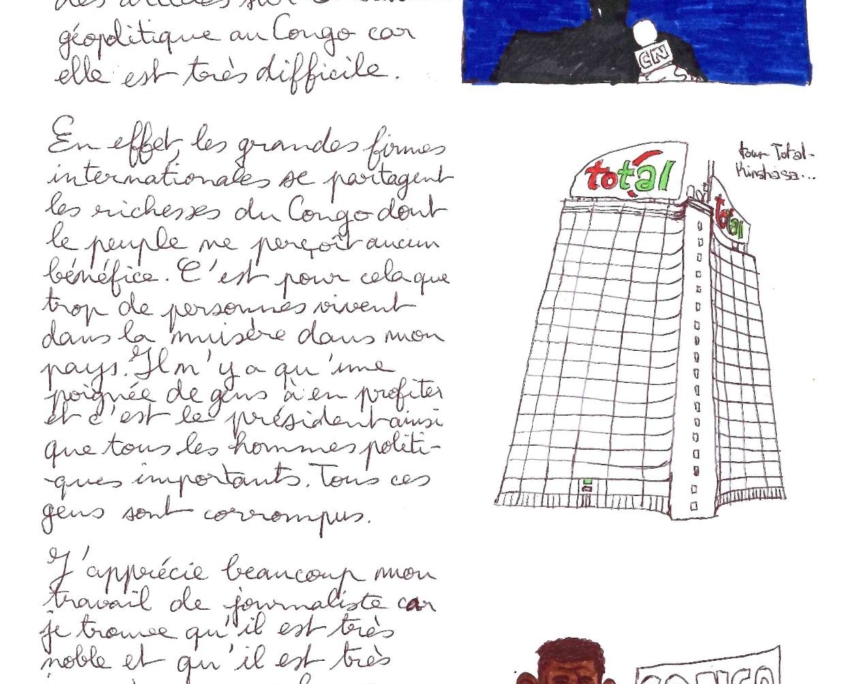 des articles sur
géopolitique au Congo car
elle est très difficile.
CN
En effet, les grandes firmes
internationales se partagent
les richesses du Congo dont
le peuple ne perçoit aucun
bénéfice. C'est pour cela que
trop de personnes vivent
dans la misère dans mon
pays. Il n'y a qu'une
poignée de gens à en profiter
et c'est le président ainsi
que tous les hommes politi-
-ques importants. Tous ces
gens sont corrompus.
total
total
tour Total-
Kinshasa...
J'apprécie beaucoup mon
travail de journaliste car
je trouve qu'il est très
noble et qu'il est très
CONGO